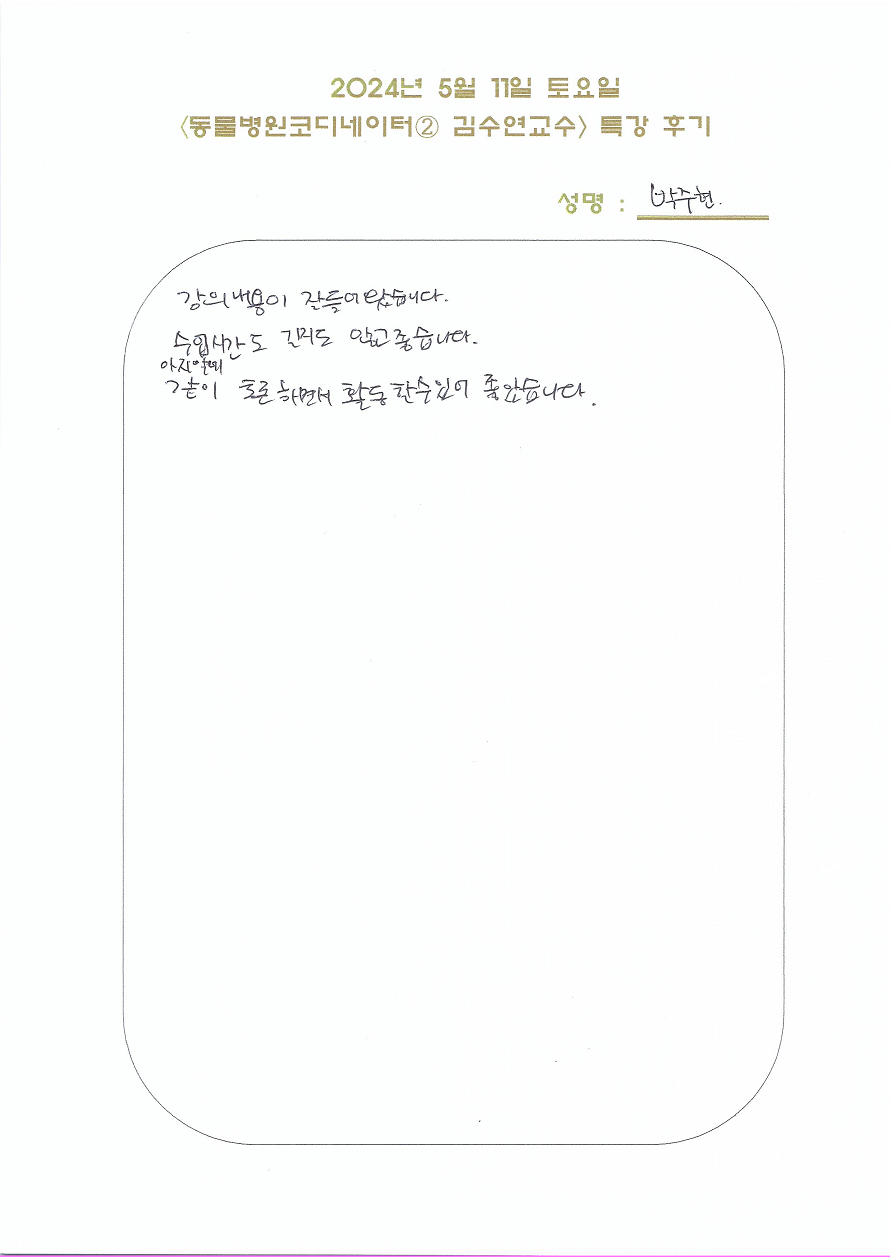 2024년 5월 11일 토요일
〈동물병원코디네이터② 김수연교수〉 특강 후기
성명 : 박주현.
강의내용이 잘들어왔습니다.
수업시간도 길지도 않고 좋습니다.
같이 토론하면서 활동할수있어 좋았습니다.